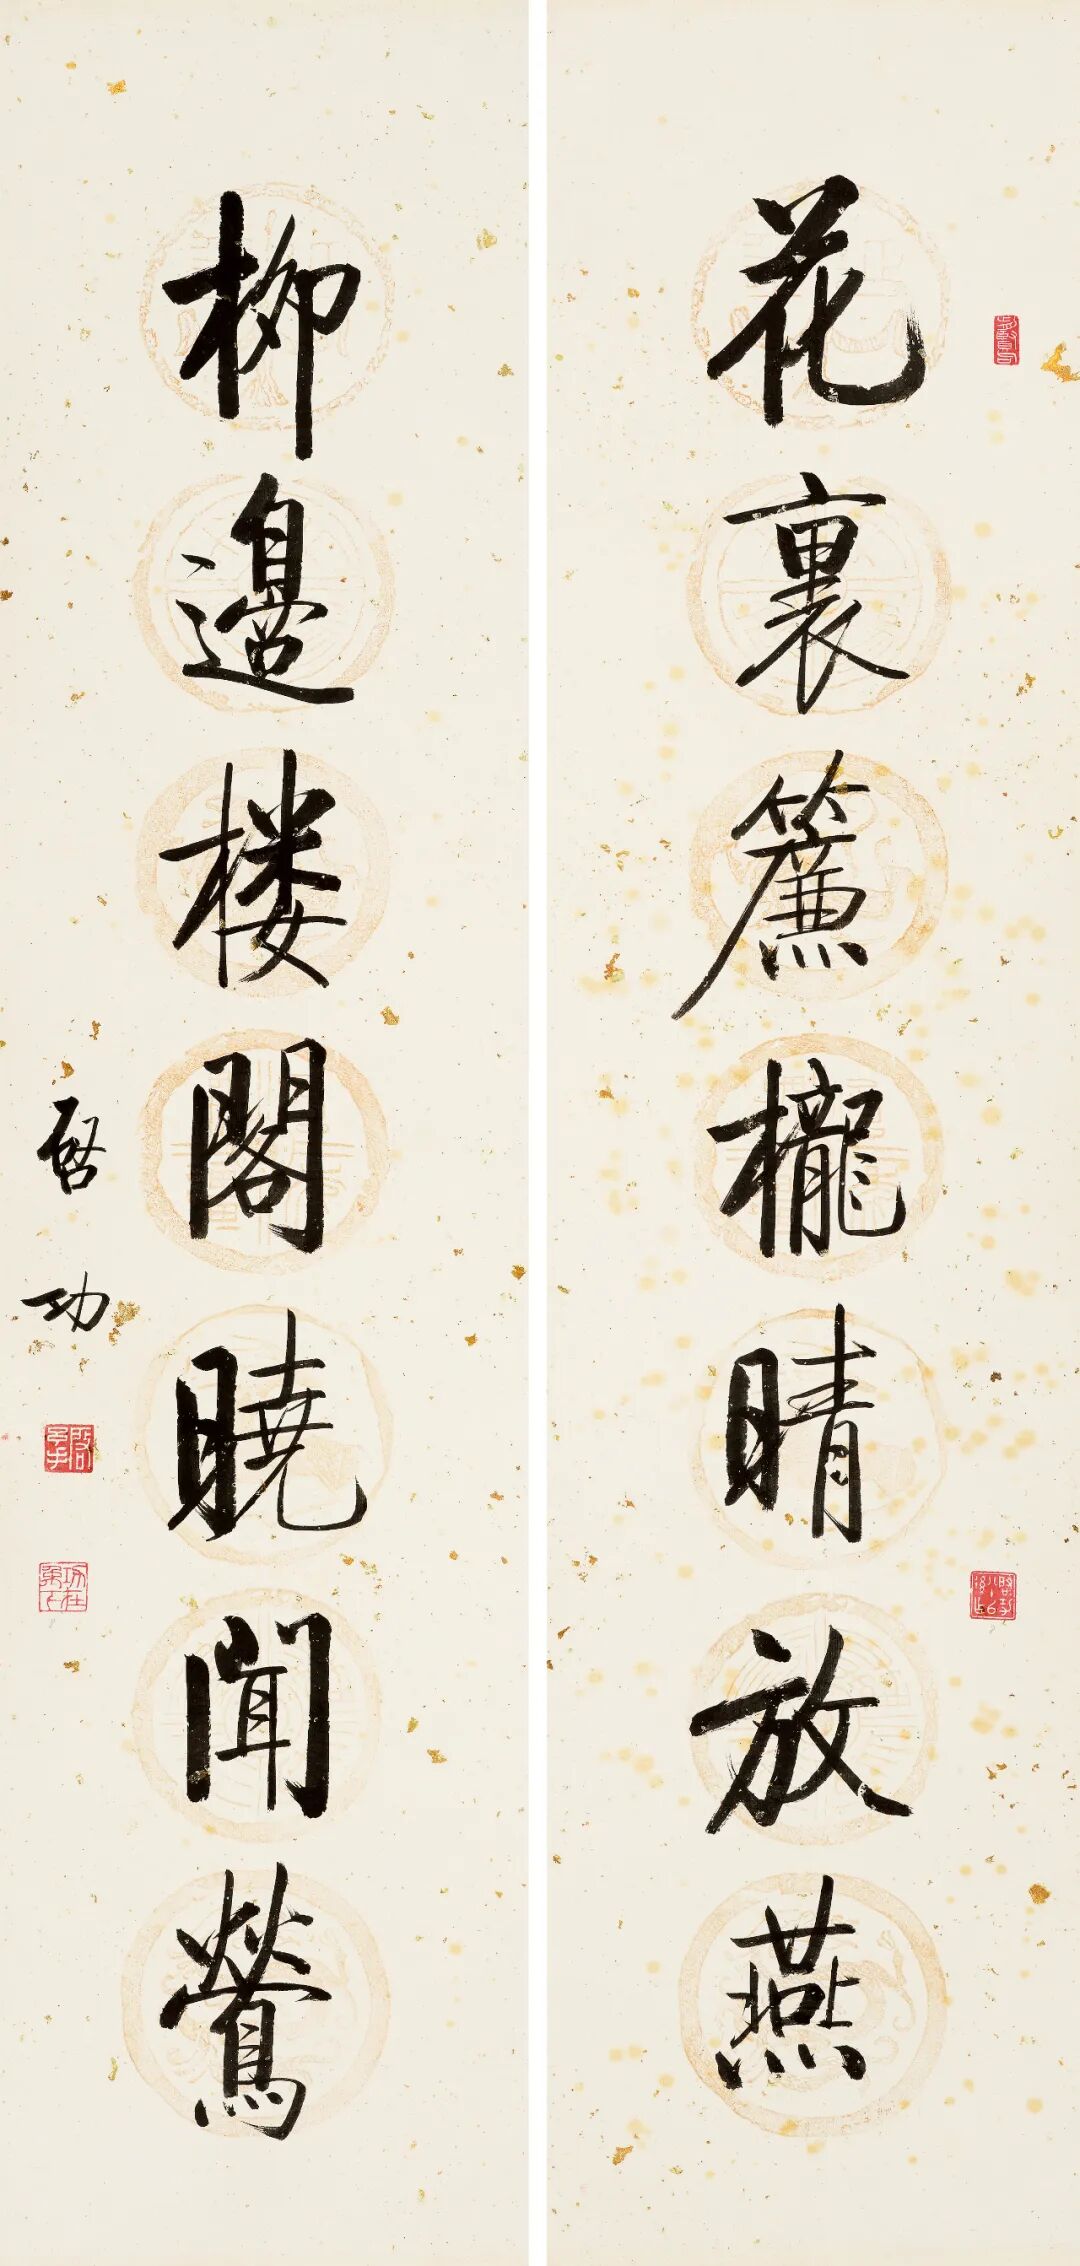 花裏簾櫳晴放燕
柳邊楼閣曉聞鶯
啓功